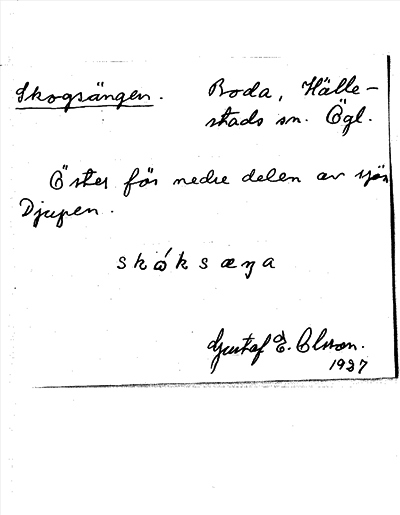 Skogsängen. Boda, Hälle-
stads sn. Ögl.
Öster för nedre delen av sjön
Djupen.
skóksæŋa
Gustaf E. Olsson.
1927